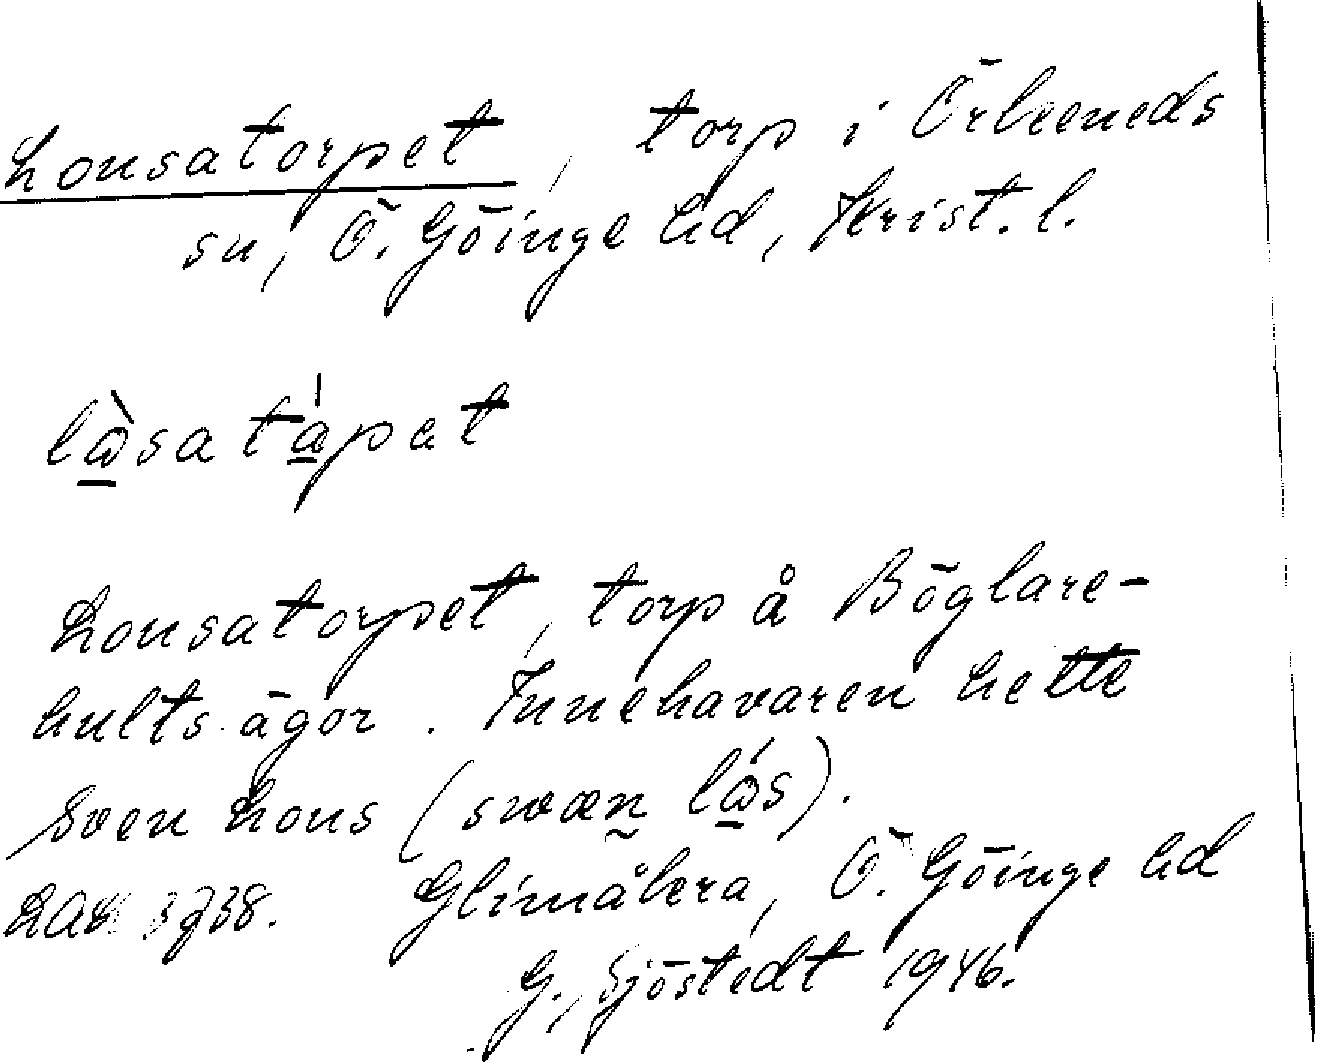 Lonsatorpet, torp i Örkeneds
sn, Ö. Göinge hd, Krist. l.
lǫ̀satápat
Lonsatorpet, torp å Böglare-
hults ägor. Innehavaren hette
Sven Lons (swæn lǫ́s).
Glimåkra, Ö. Göinge hd
G. Sjöstedt 1946.